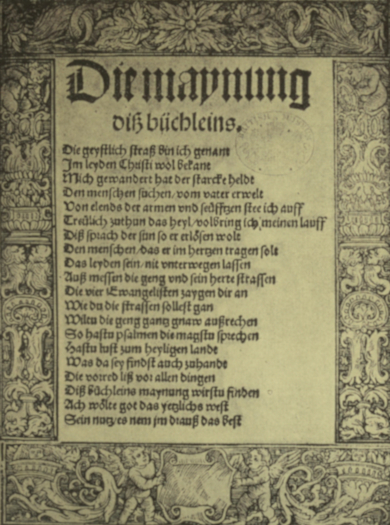 Die maynung
diß büchleins.
Die geystlich straß bin ich genant
Im leyden Christi wol bekant
Mich gewandert hat der starcke heldt
Den menschen suchen / vom vater erwelt
Von elends der armen vnd seüfftzen stee ich auff
Treülich zuthun das heyl / volbring ich meinen lauff
Diß sprach der sun so er erlösen wolt
Den menschen / das er im hertzen tragen solt
Das leyden sein / nit vnterwegen lassen
Auß messen die geng vnd sein herte strassen
Die vier Ewangelisten zaygen dir an
Wie du die strassen sollest gan
Wiltu die geng gantz gnaw außrechen
So hastu psalmen die magstu sprechen
Hastu lust zum heyligen lande
Was da sey findst auch zuhandt
Die vorred liß vor allen dingen
Diß Büchleins maynung wirstu finden
Ach wölte got das yetzlichs west
Sein nutz es nem im drauß das best